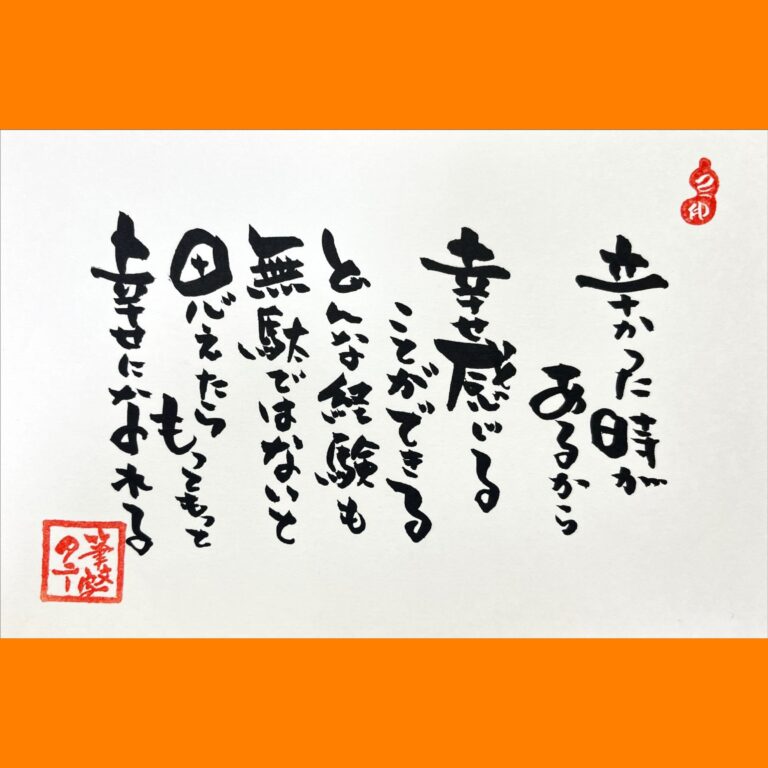 辛かった時が
あるから
幸せ感じる
ことができる
どんな経験も
無駄ではないと
思えたら
もっともっと
幸せになれる